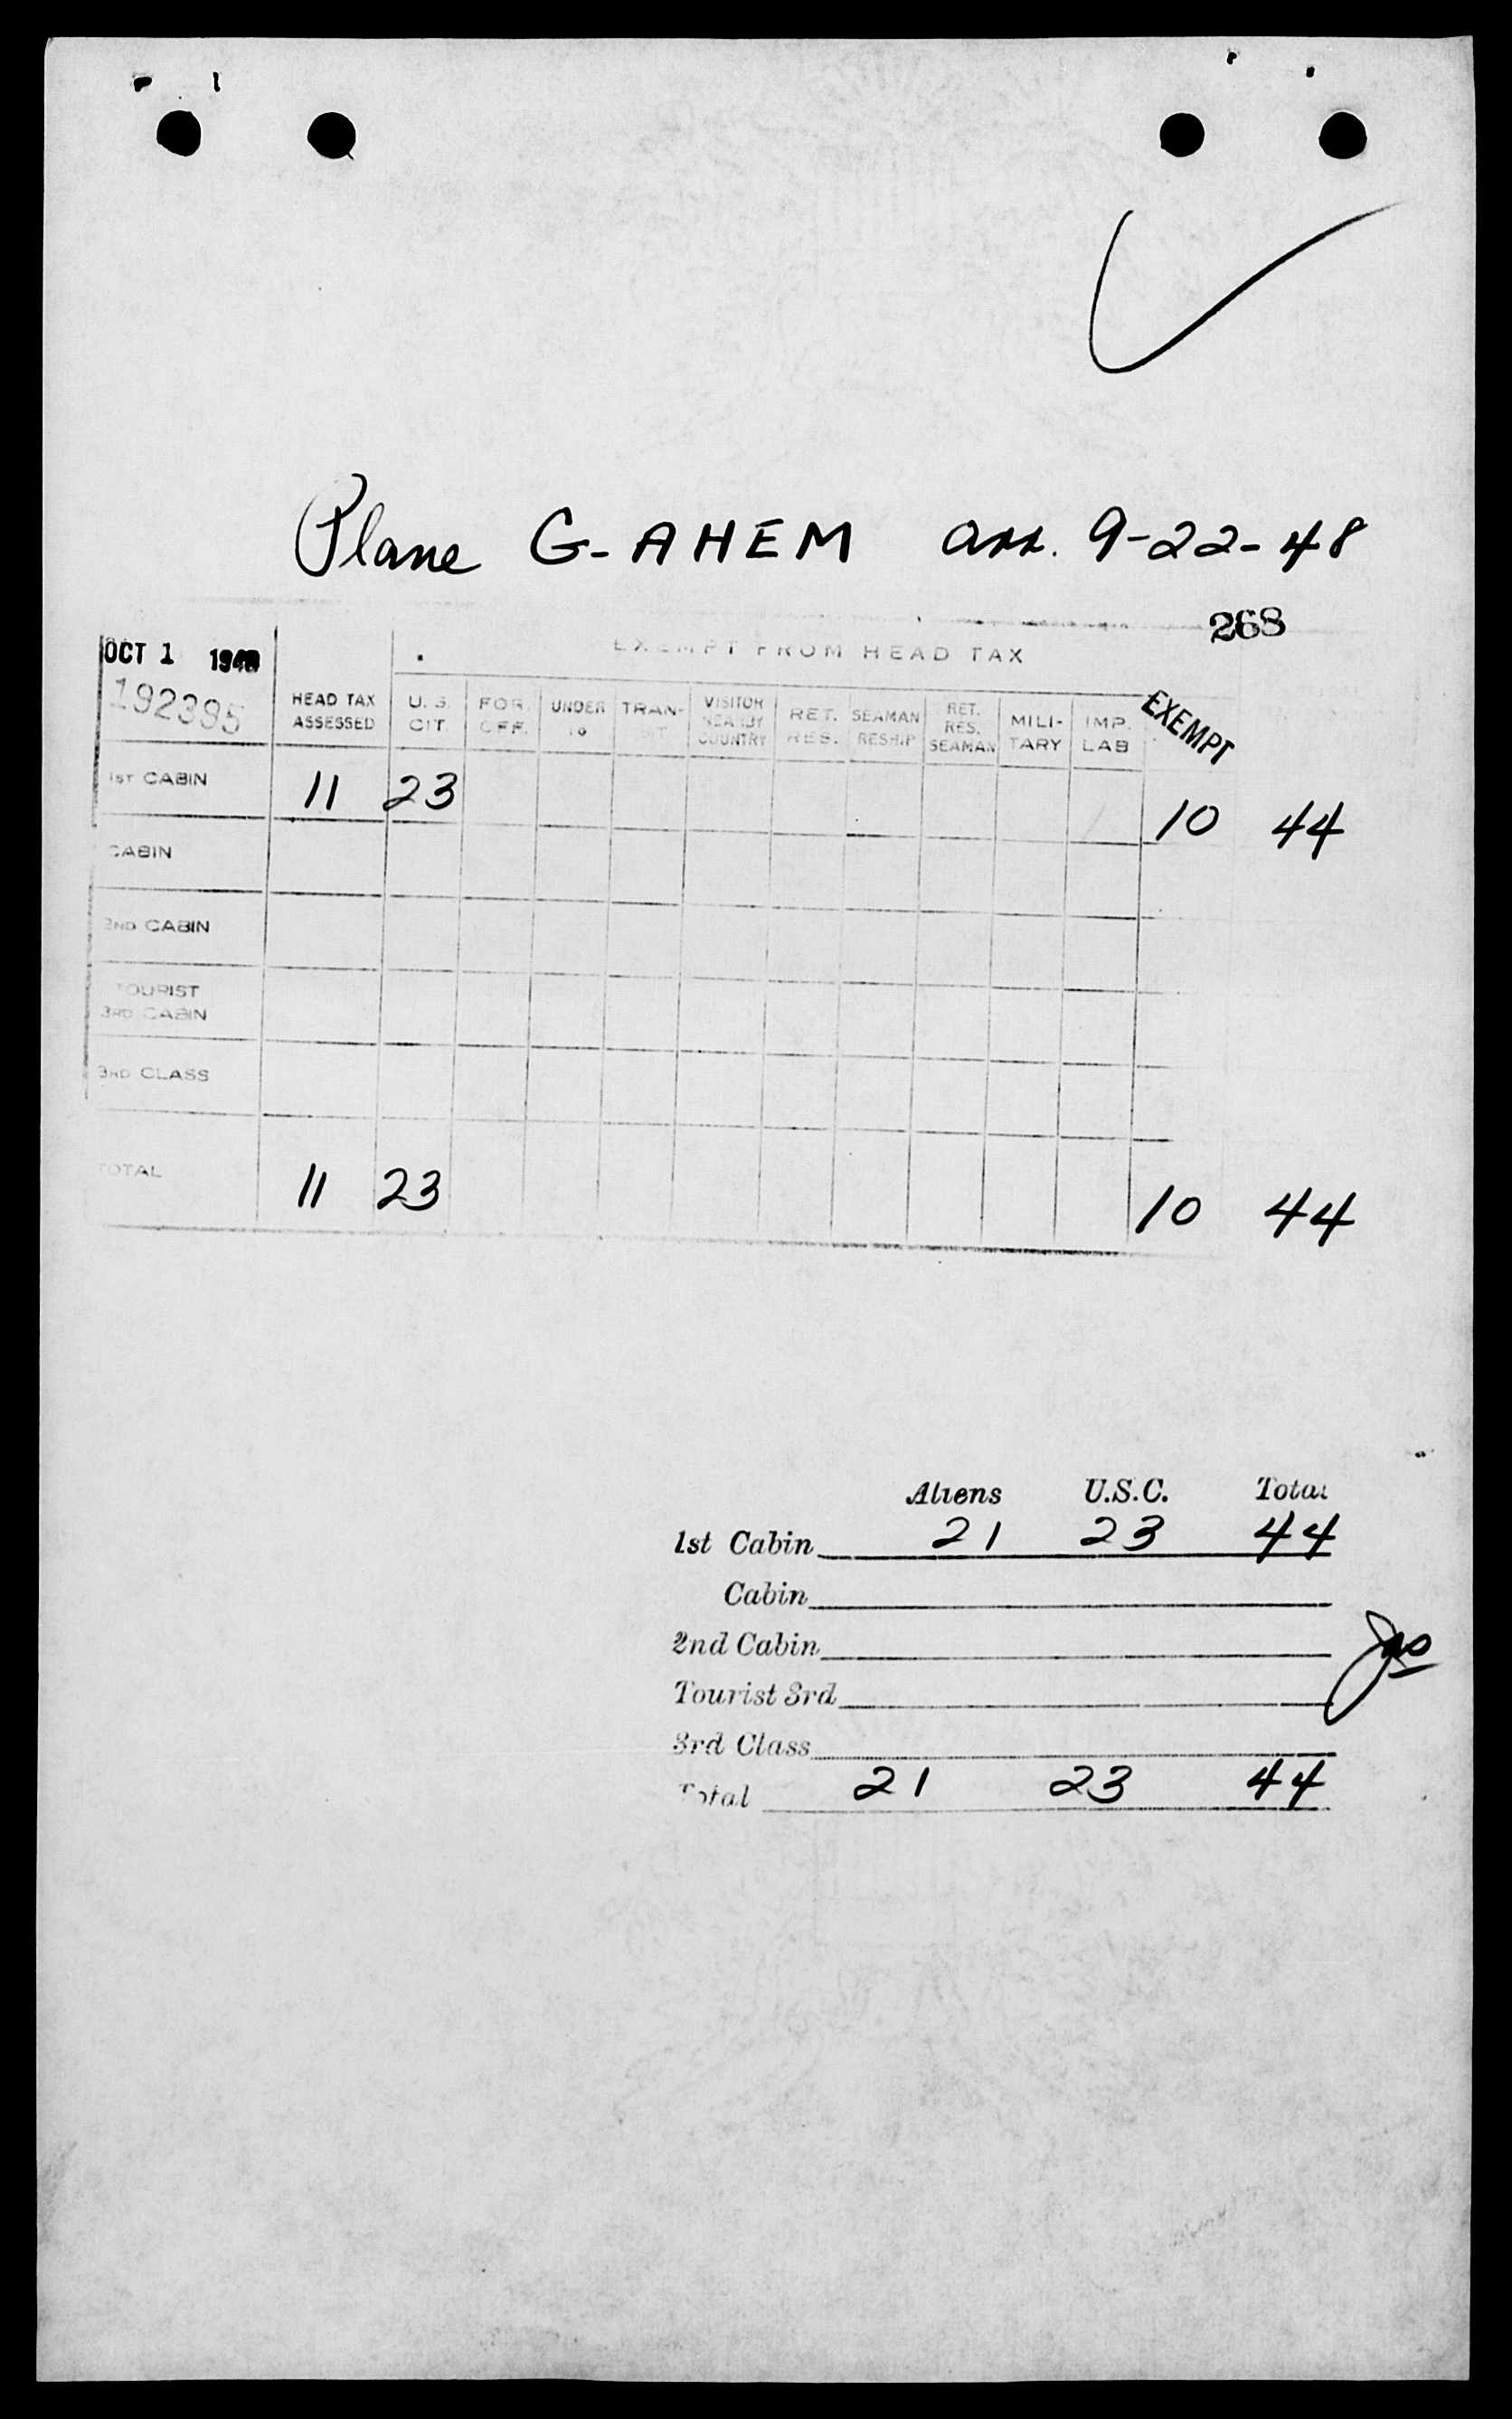 Plane G-AHEM arr. 9-22-48
268
OCT 1 1948
192395
EXEMPT FROM HEAD TAX
HEAD TAX ASSESSED
U. S. CIT.
FOR. OFF.
UNDER 16
TRAN-SIT
VISITOR NEARBY COUNTRY
RET. RES.
SEAMAN RESHIP
RET. RES. SEAMAN
MILI-TARY
IMP. LAB
EXEMPT
1ST CABIN 11 23 10 44
CABIN
2ND CABIN
TOURIST
3RD CABIN
3RD CLASS
TOTAL 11 23 10 44
Aliens U.S.C. Total
1st Cabin 21 23 44
Cabin
2nd Cabin
Tourist 3rd
3rd Class
Total 21 23 44